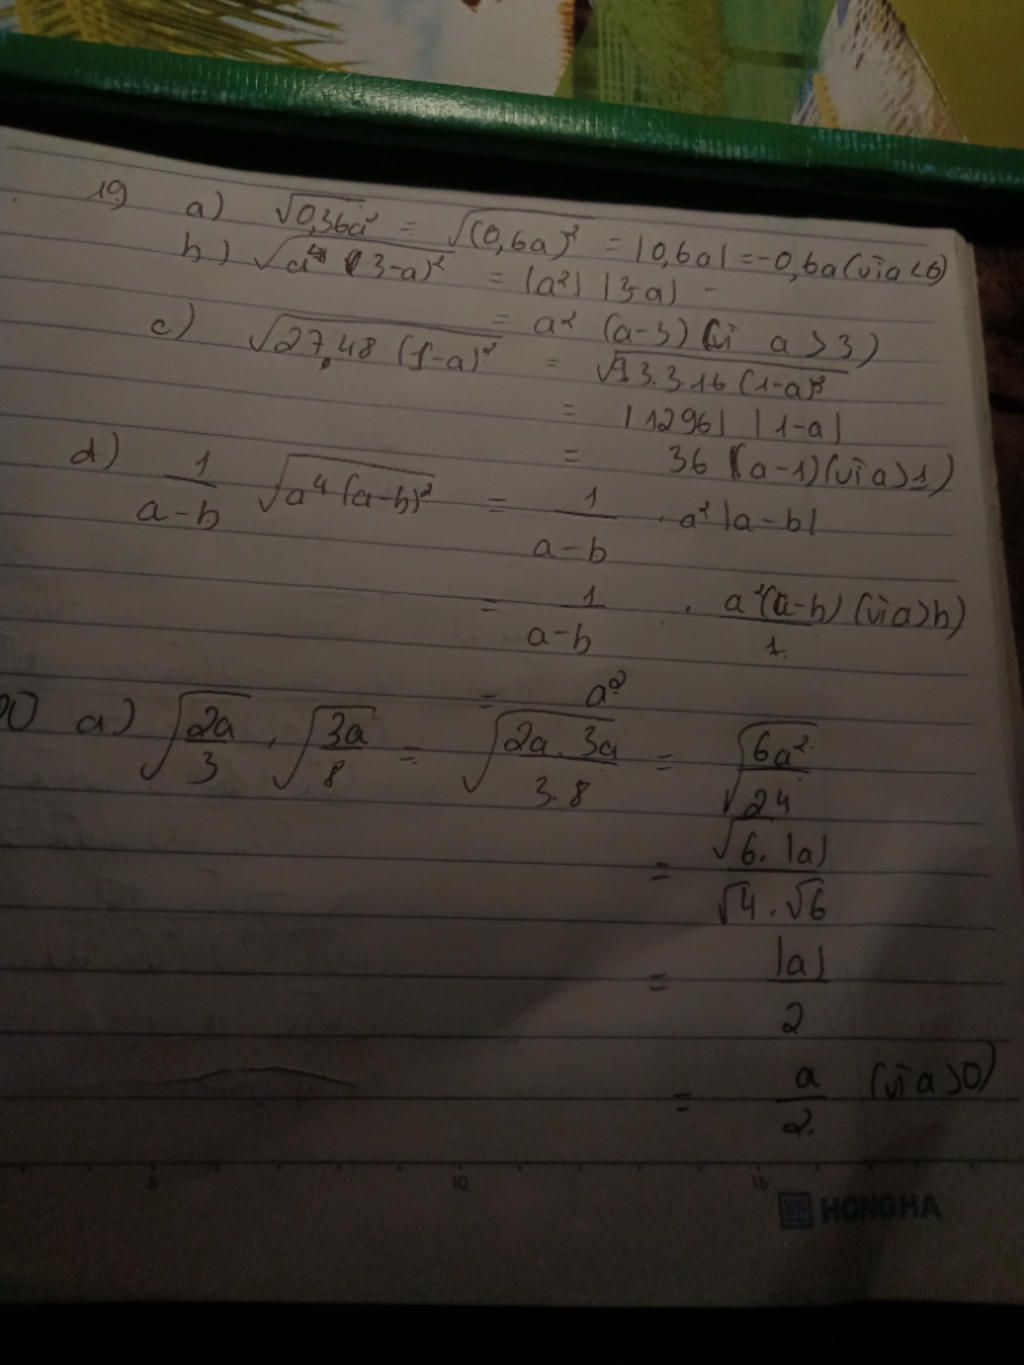 19 a) √0,36a² = √(0,6a)² = |0,6a| = -0,6a (vì a<0)
b) √a⁴ (3-a)² = |a²| |3-a| -
= a² (a-3) (vì a > 3)
c) √27.48 (1-a)² = √9.3.3.16 (1-a)²
= |1296| |1-a|
= 36 (a-1) (vì a>1)
d) 1/(a-b) √a⁴(a-b)² = 1/(a-b) . a² |a-b|
= 1/(a-b) . a²(a-b)/1 (vì a>b)
= a²
20 a) √(2a/3) . √(3a/8) = √(2a.3a/3.8) = √6a²/√24
= √6.|a|/√4.√6
= |a|/2
= a/2 (vì a>0)
5 10 15
HONG HA